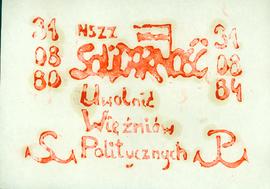 31 NSZZ 31
08 SOLIDARNOŚĆ 08
80 Uwolnić 84
Więźniów
Politycznych